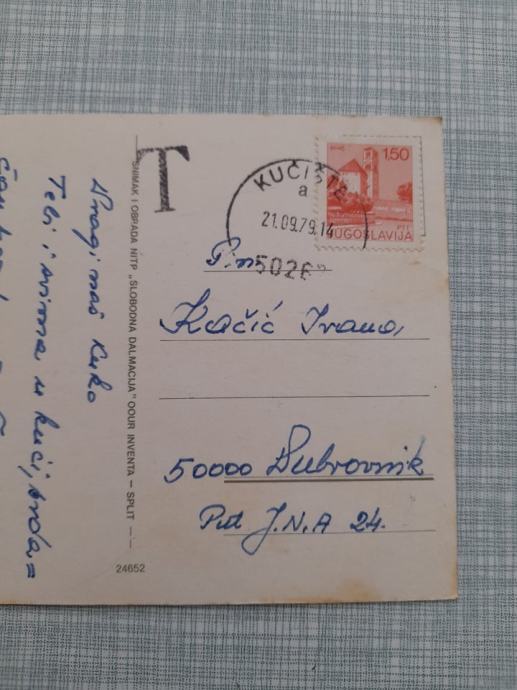 Dragi naš Kuko
Tebi i svima u kući, srda=
T
SNIMAK I OBRADA NITP „SLOBODNA DALMACIJA" OOUR INVENTA — SPLIT — —
24652
KUČIŠTE
a
21.09.79.14
5026
1,50
PTT
JUGOSLAVIJA
Kačić Ivana,
50000 Dubrovnik
Put J.N.A 24.